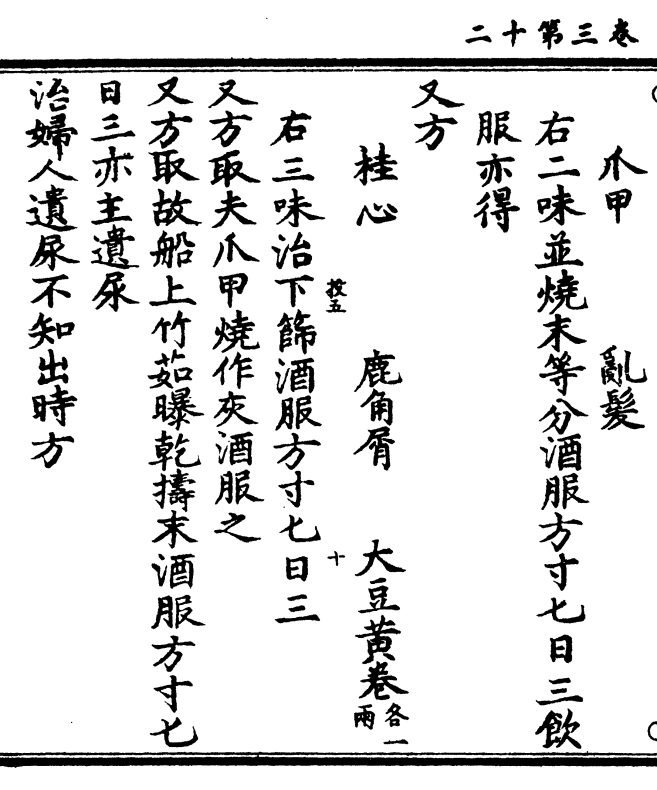 卷三第十二
爪甲　亂髮
右二味並燒末等分酒服方寸匕日三飲
服亦得
又方
桂心　鹿角屑　大豆黃卷各一兩
右三味治下篩酒服方寸匕日三
又方取夫爪甲燒作灰酒服之
又方取故船上竹茹曝乾擣末酒服方寸匕
日三亦主遺尿
治婦人遺尿不知出時方
十